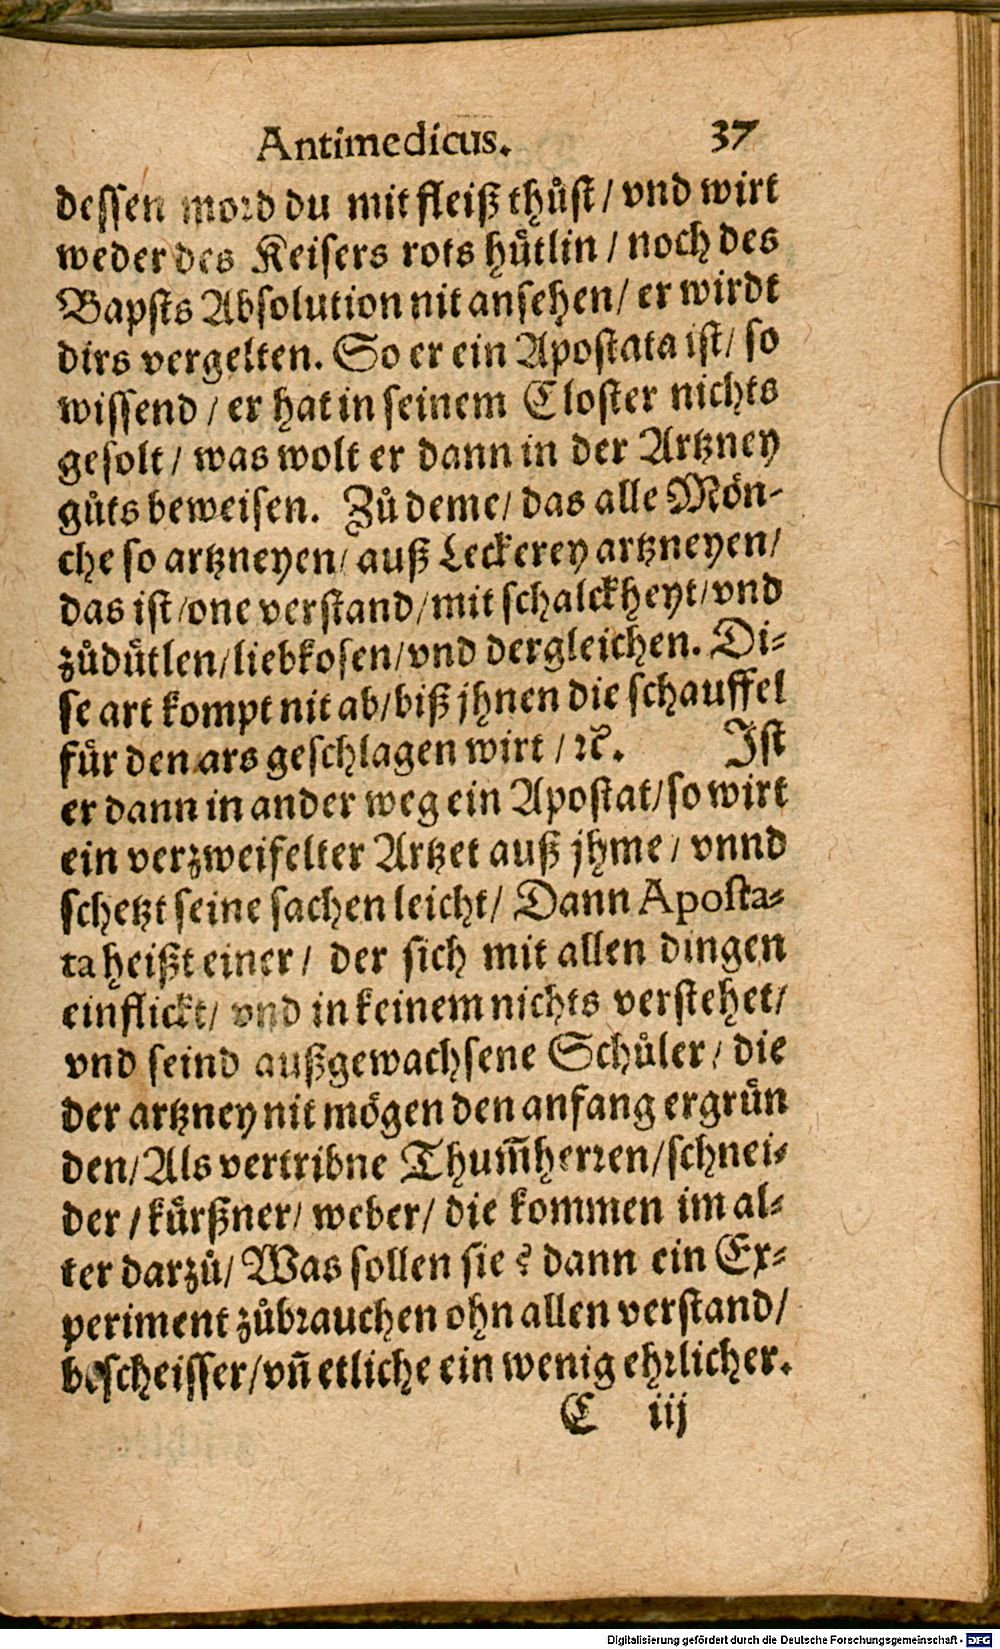 Antimedicus. 37
dessen mord du mit fleiß thůst / vnd wirt
weder des Keisers rots hütlin / noch des
Bapsts Absolution nit ansehen / er wirdt
dirs vergelten. So er ein Apostata ist / so
wissend / er hat in seinem Closter nichts
gesolt / was wolt er dann in der Artzney
gůts beweisen. Zů deme / das alle Mön-
che so artzneyen / auß Leckerey artzneyen /
das ist / one verstand / mit schalckheyt / vnd
zůdütlen / liebkosen / vnd dergleichen. Di-
se art kompt nit ab / biß jhnen die schauffel
für den ars geschlagen wirt / ꝛc̃. Ist
er dann in ander weg ein Apostat / so wirt
ein verzweifelter Artzet auß jhme / vnnd
schetzt seine sachen leicht / Dann Aposta-
ta heißt einer / der sich mit allen dingen
einflickt / vnd in keinem nichts verstehet /
vnd seind außgewachsene Schůler / die
der artzney nit mögen den anfang ergrün
den / Als vertribne Thum̃herren / schnei-
der / kürßner / weber / die kommen im al-
ter darzů / Was sollen sie? dann ein Ex-
periment zůbrauchen ohn allen verstand /
bescheisser / vñ etliche ein wenig ehrlicher.
C iij
Digitalisierung gefördert durch die Deutsche Forschungsgemeinschaft - DFG